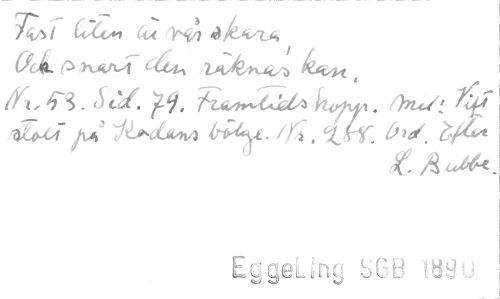 Fast liten är vår skara
Och snart den räknas kan.
Nr. 53. Sid. 79. Framtidshopp. Mel: Vift
stolt på Kodans bölge. Nr. 288. Ord. Efter
L. Bubbe.
EggeLing SGB 1890